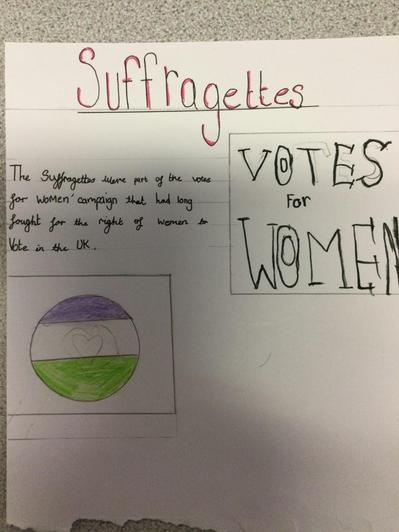 Suffragettes
The Suffragettes were part of the votes
for WOMEN' campaign that had long
fought for the right of women to
Vote in the UK.
VOTES
FOR
WOMEN